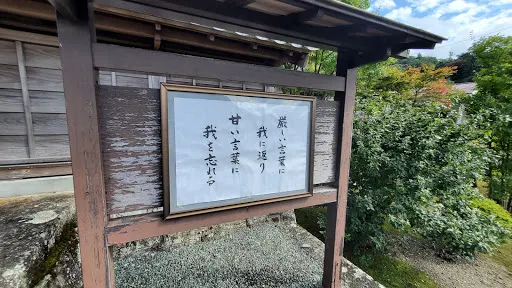 厳しい言葉に
我に返り
甘い言葉に
我を忘れる